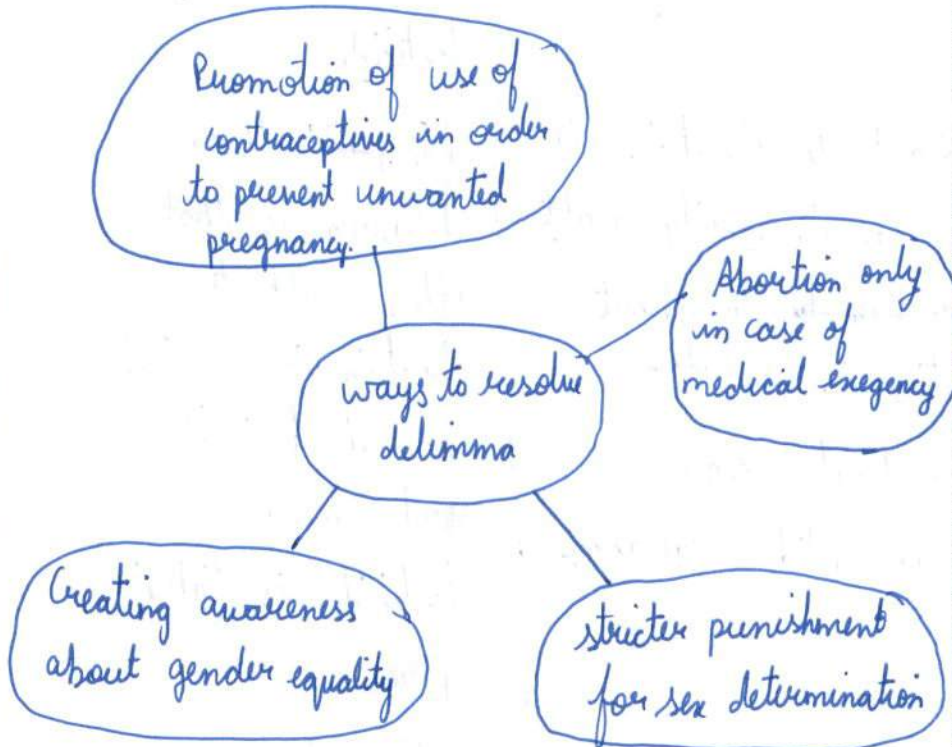 Promotion of use of
contraceptives in order
to prevent unwanted
pregnancy.
Abortion only
in case of
medical exegency
ways to resolve
delimma
Creating awareness
about gender equality
stricter punishment
for sex determination